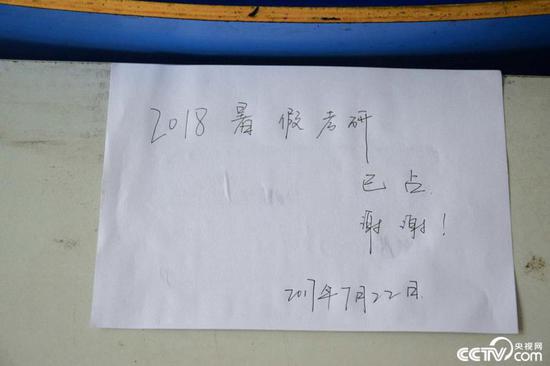 2018 暑假考研
已占
谢谢!
2017年7月22日
CCTV 央视网
com